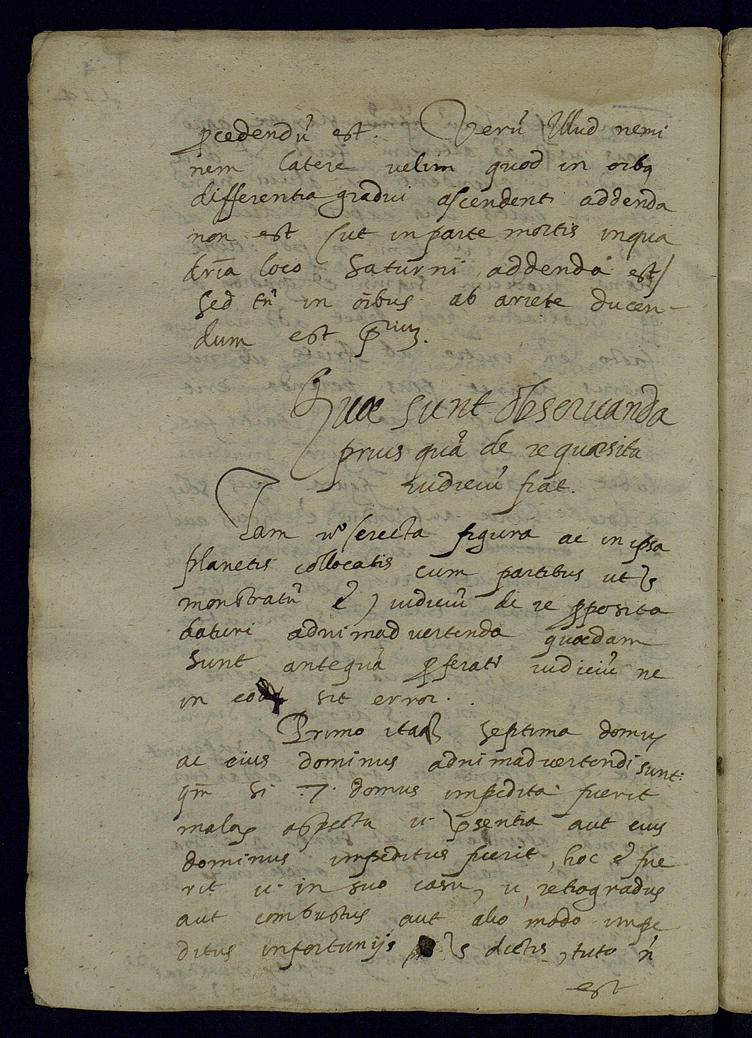 pcedendū est. Verū illud nemi
nem latere velim quod in oībq
differentia gradui ascendenti addenda
non est (ut in parte mortis in qua
dr̄ia loco Saturni addenda est)
sed tn̄ in oībus ab ariete ducen-
dum est
Quæ sunt observanda
prius quā de re quæsita
iudiciū fiat.
Iam vº erecta figura ac in ipsa
planetis collocatis cum partibus ut
monstratū ē, iudiciū de re pposita
daturi adnimadvertenda quædam
sunt antequā pferāt iudiciū ne
in sit error.
Primo itaq septima domus
ac eius dominus adnimadvertendi sunt:
qm̄ si .7. domus impedita fuerit
malor aspectu u. psentia aut eius
dominus impeditus fuerit, hoc ē fue
rit u. in suo casu, u. retrogradus
aut combustus aut alio modo impe
ditus infortunijs dictis, tuto n̄
est